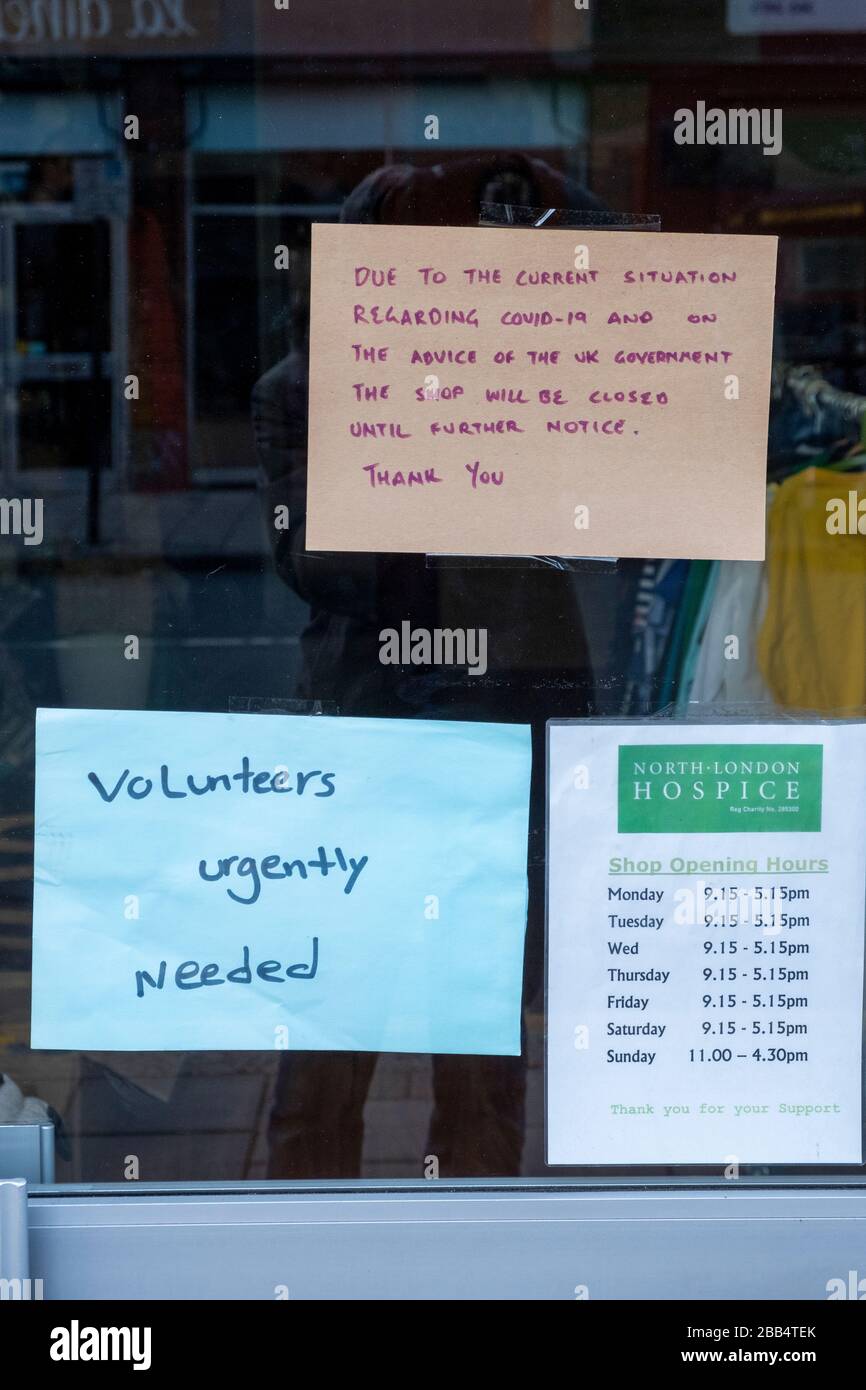 DUE TO THE CURRENT SITUATION
REGARDING COVID-19 AND ON
THE ADVICE OF THE UK GOVERNMENT
THE SHOP WILL BE CLOSED
UNTIL FURTHER NOTICE.
THANK YOU
Volunteers
urgently
Needed
NORTH·LONDON
HOSPICE
Reg Charity No. 285300
Shop Opening Hours
Monday 9.15 - 5.15pm
Tuesday 9.15 - 5.15pm
Wed 9.15 - 5.15pm
Thursday 9.15 - 5.15pm
Friday 9.15 - 5.15pm
Saturday 9.15 - 5.15pm
Sunday 11.00 – 4.30pm
Thank you for your Support
alamy
alamy
Image ID: 2BB4TEK
www.alamy.com